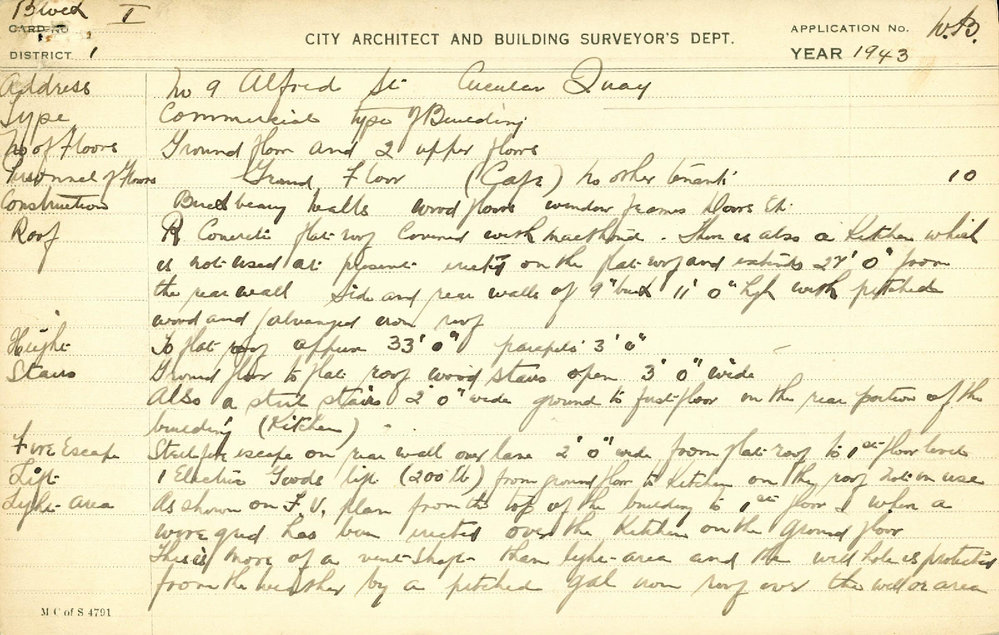 Block I
CARD NO
DISTRICT 1
CITY ARCHITECT AND BUILDING SURVEYOR'S DEPT.
APPLICATION No. W.B.
YEAR 1943
Address No 9 Alfred St Circular Quay
Type Commercial type of Building
No of Floors Ground floor and 2 upper floors
Personnel of Floors Ground Floor (Cafe) no other tenants 10
Construction walls wood floors window frames Doors Etc.
Roof R Concrete flat roof covered with malthoid. There is also a Kitchen which
is not used at present erected on the flat roof and extends 27' 0" from
the rear wall Side and rear walls of 9" brick 11' 0" high with pitched
wood and galvanized iron roof
Height To flat roof approx 33' 0" parapets 3' 0"
Stairs Ground floor to flat roof wood stairs open 3' 0" wide
Also a steel stairs 2' 0" wide ground to first floor on the rear portion of the
building (Kitchen)
Fire Escape Steel fire escape on rear wall over lane 2' 0" wide from flat roof to 1st floor level
Lift 1 Electric Goods lift (200 lb) from ground floor to Kitchen on the roof not in use
Light-area As shown on F.U. plan from the top of the building to 1st floor & when a
wire grid has been erected over the Kitchen on the ground floor
This is more of a vent-shaft than light-area and the well hole is protected
from the weather by a pitched gal iron roof over the well or area
M C of S 4791